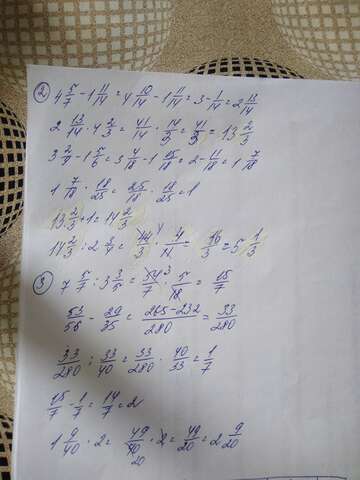 ② 4 5/7 - 1 11/14 = 4 10/14 - 1 11/14 = 3 - 1/14 = 2 13/14
2 13/14 · 4 2/3 = 41/14 · 14/3 = 41/3 = 13 2/3
3 2/9 - 1 5/6 = 3 4/18 - 1 15/18 = 2 - 11/18 = 1 7/18
1 7/18 · 18/25 = 25/18 · 18/25 = 1
13 2/3 + 1 = 14 2/3
14 2/3 : 2 3/4 = 44/3 · 4/11 = 16/3 = 5 1/3
③ 7 5/7 : 3 3/5 = 54/7 · 5/18 = 15/7
53/56 - 29/35 = 265-232/280 = 33/280
33/280 : 33/40 = 33/280 · 40/33 = 1/7
15/7 - 1/7 = 14/7 = 2
1 9/40 · 2 = 49/40 · 2 = 49/20 = 2 9/20
20